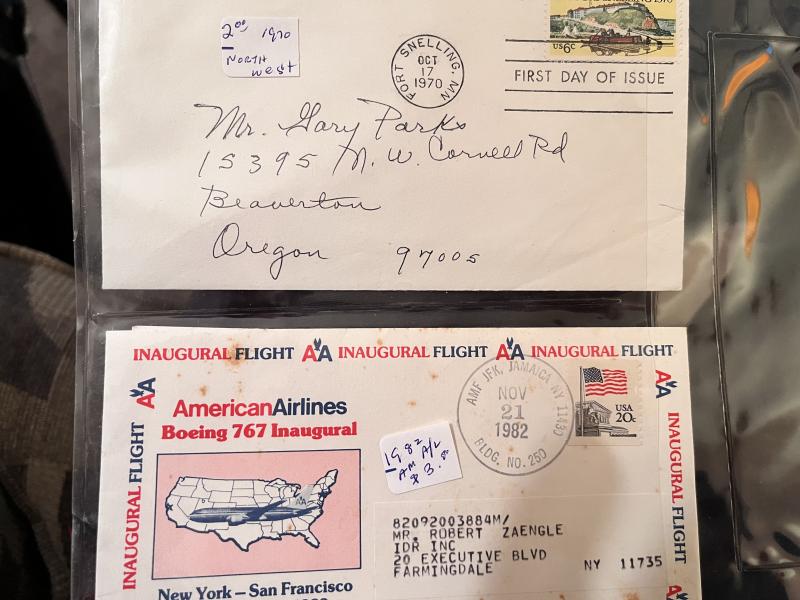 2.00 1970
NORTH
west
FORT SNELLING, MN
OCT
17
1970
US 6c
FIRST DAY OF ISSUE
Mr. Gary Parks
15395 N. W. Cornell Rd
Beaverton
Oregon 97005
INAUGURAL FLIGHT AA INAUGURAL FLIGHT AA INAUGURAL FLIGHT
AA
INAUGURAL FLIGHT
AmericanAirlines
Boeing 767 Inaugural
AA
New York – San Francisco
1982 A/L
AM
$3.50
AMF JFK, JAMAICA NY 11430
NOV
21
1982
BLDG. NO. 250
USA
20c
AA
INAUGURAL FLIGHT
82092003884M/
MR. ROBERT ZAENGLE
IDR INC
20 EXECUTIVE BLVD
FARMINGDALE NY 11735